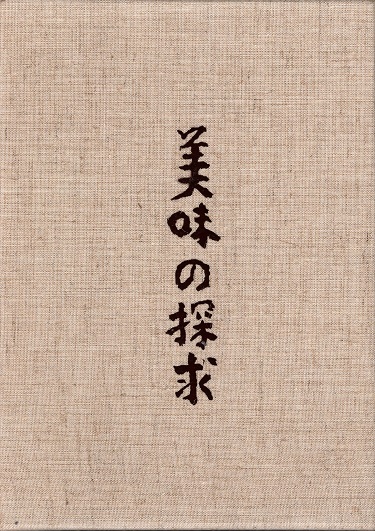 美味の探求